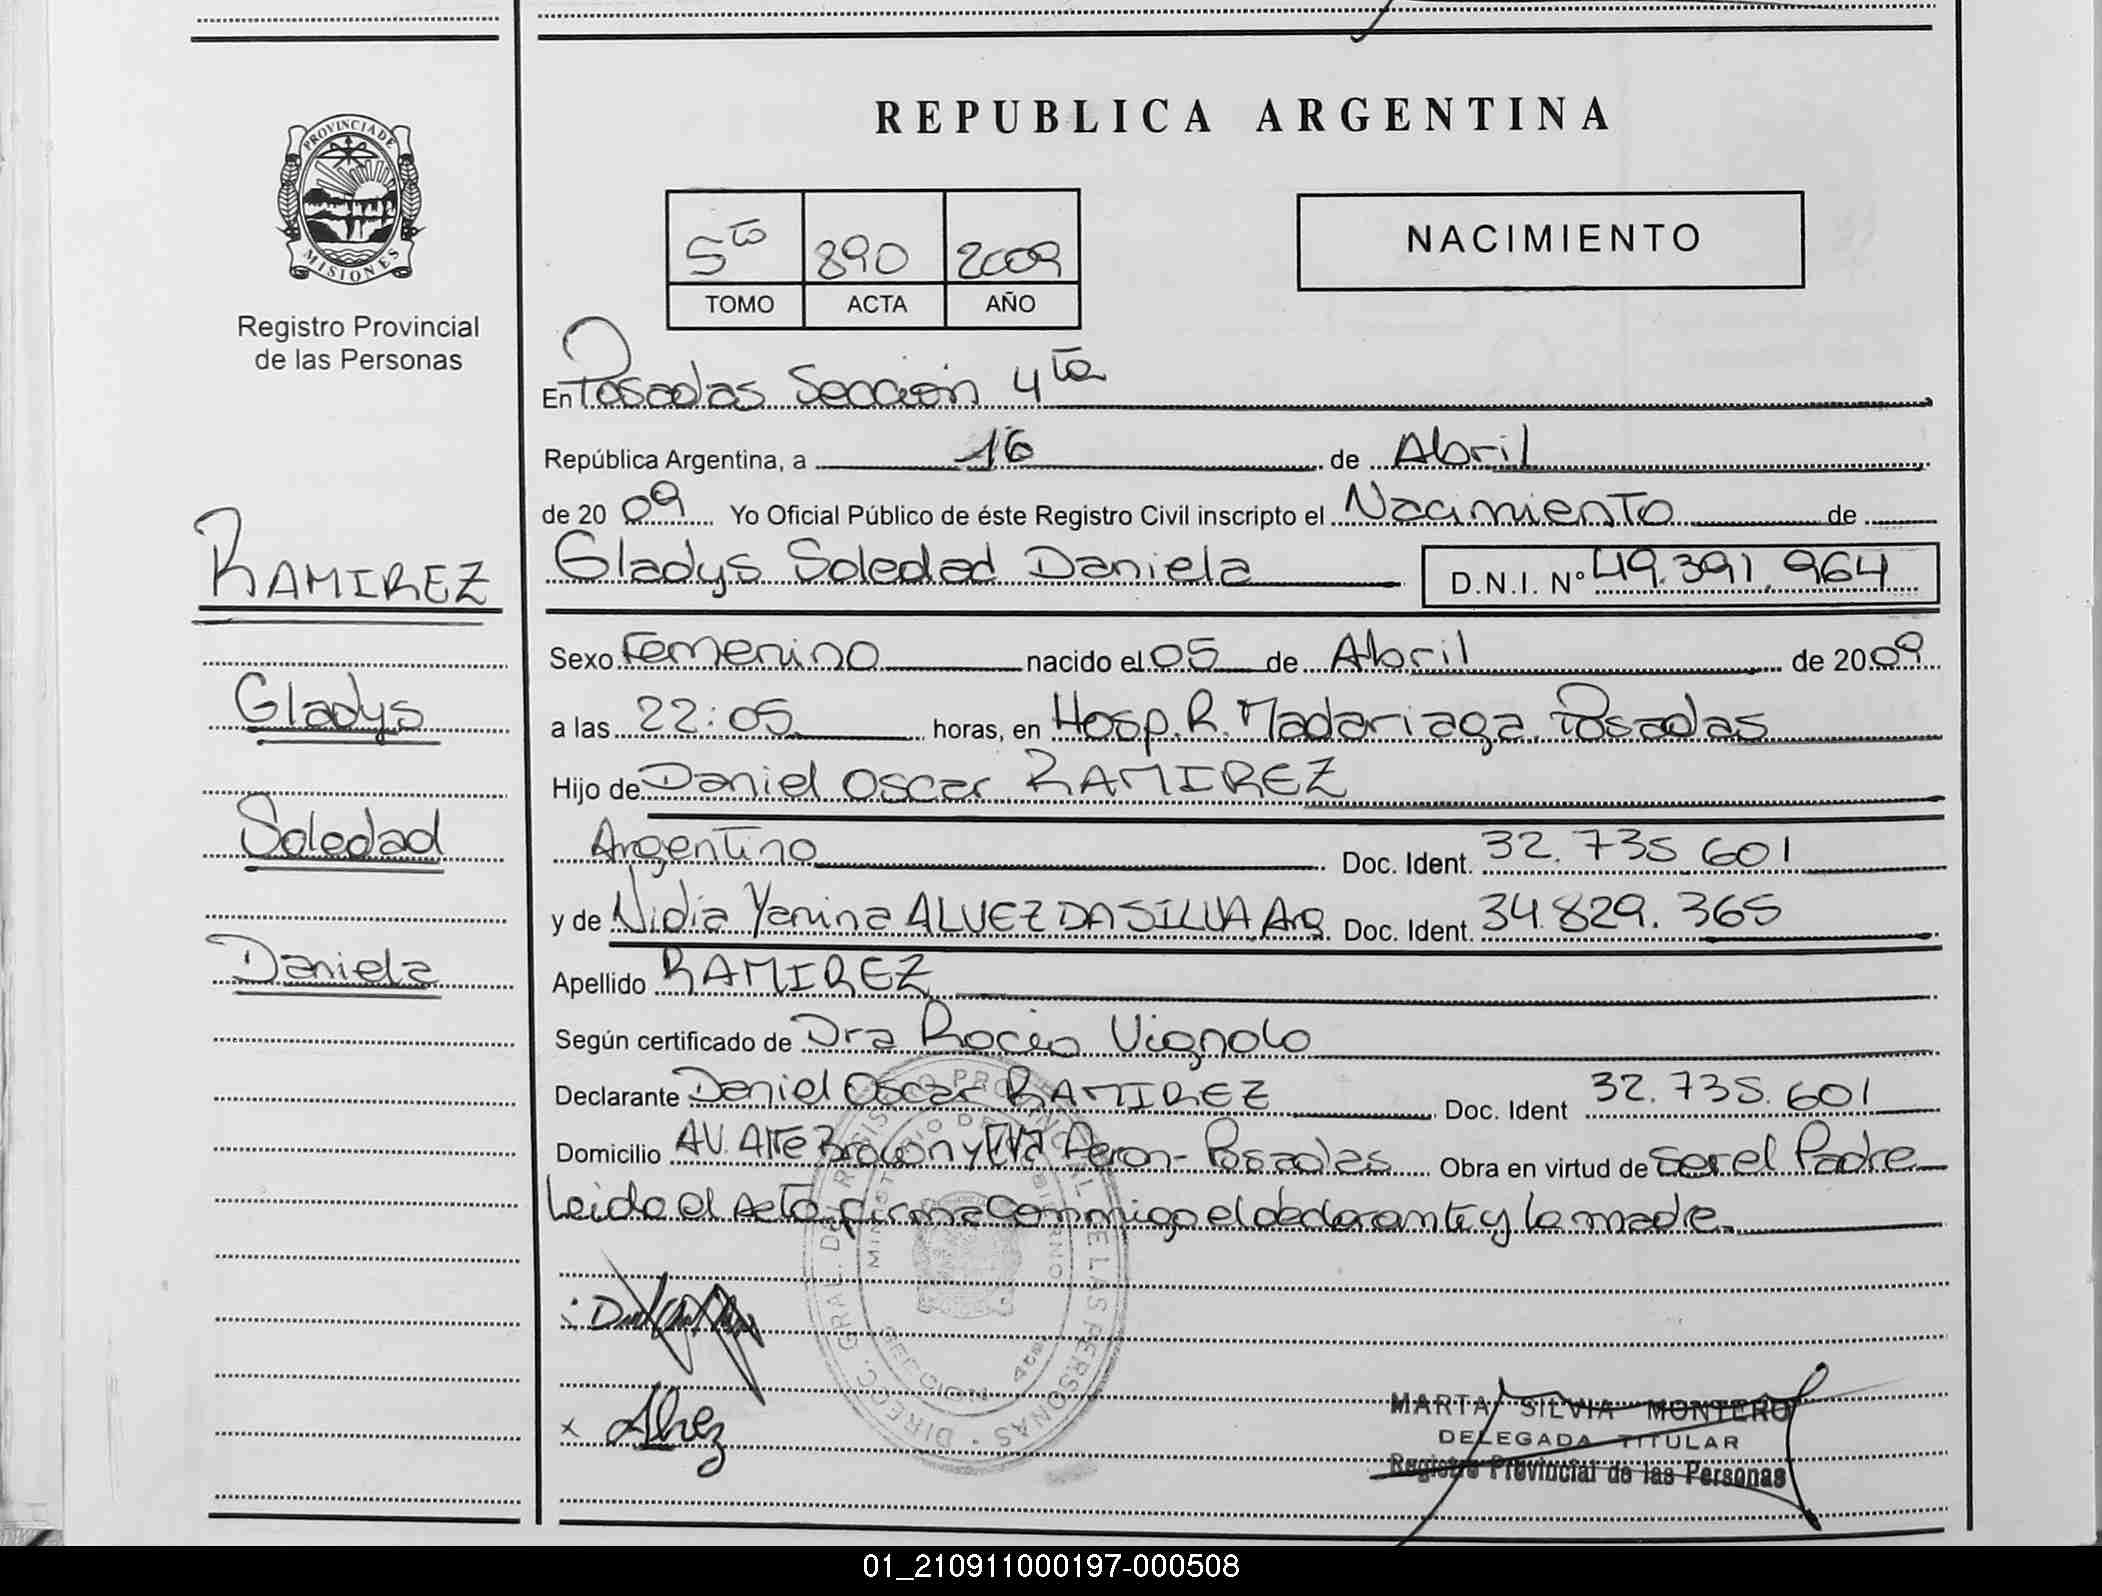 REPUBLICA ARGENTINA
PROVINCIA DE
MISIONES
Registro Provincial
de las Personas
5to 890 2009
TOMO ACTA AÑO
NACIMIENTO
En Posadas Sección 4ta
República Argentina, a 16 de Abril
de 2009 Yo Oficial Público de éste Registro Civil inscripto el Nacimiento de
Gladys Soledad Daniela D.N.I. Nº 49.391.964
RAMIREZ
Gladys
Soledad
Daniela
Sexo Femenino nacido el 05 de Abril de 2009
a las 22:05 horas, en Hosp. R. Madariaga. Posadas
Hijo de Daniel Oscar RAMIREZ
Argentino Doc. Ident. 32.735.601
y de Nidia Yanina ALVEZ DA SILVA Arg. Doc. Ident. 34.829.365
Apellido RAMIREZ
Según certificado de Dra Rocío Vignolo
Declarante Daniel Oscar RAMIREZ Doc. Ident 32.735.601
Domicilio AV. Alte Brown y EVA Peron - Posadas Obra en virtud de ser el Padre
Leido el acta, firma conmigo el declarante y la madre.
DIRECC. GRAL. DE REGISTRO PROVINCIAL DE LAS PERSONAS
MINISTERIO DE GOBIERNO
SECCION 4ta
x Alvez
MARTA SILVIA MONTERO
DELEGADA TITULAR
Registro Provincial de las Personas
01_210911000197-000508